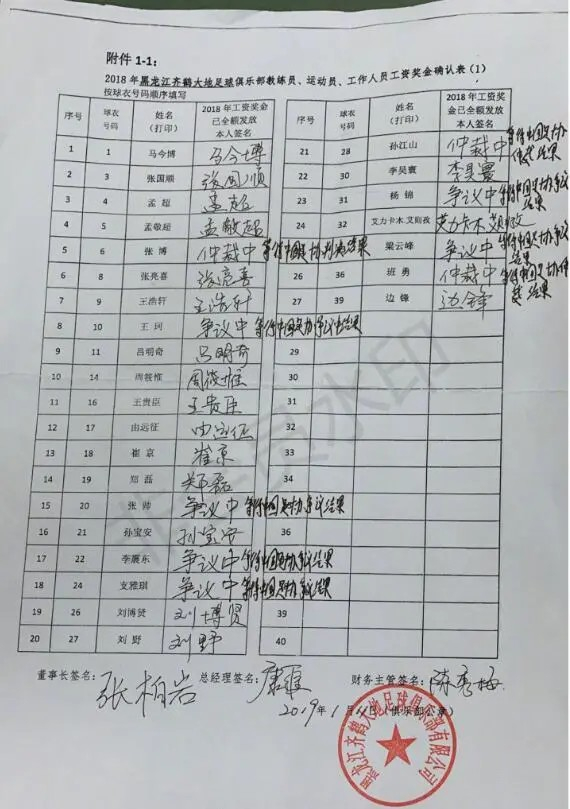 附件 1-1:
2018 年黑龙江齐鹤大地足球俱乐部教练员、运动员、工作人员工资奖金确认表（1）
按球衣号码顺序填写
序号 球衣号码 姓名（打印） 2018 年工资奖金已全额发放本人签名 序号 球衣号码 姓名（打印） 2018 年工资奖金已全额发放本人签名
1 1 马今博 马今博 21 28 孙江山 仲裁中 等待中国足协仲裁结果
2 3 张国顺 张国顺 22 30 李昊寰 李昊寰
3 4 孟超 孟超 23 31 杨锦 争议中 等待中国足协争议结果
4 5 孟敬超 孟敬超 24 32 艾力卡木·艾则孜 艾力卡木
5 6 张博 仲裁中 梁云峰 争议中 等待中国足协争议结果
6 8 张亮喜 张亮喜 26 36 班勇 仲裁中 等待中国足协仲裁结果
7 9 王浩轩 王浩轩 27 39 边锋 边锋
8 10 王珂 争议中
9 11 吕明奇 吕明奇 29
10 14 周筱惟 周筱惟 30
11 16 王贵臣 王贵臣 31
12 17 由远征 由远征 32
13 18 崔京 崔京 33
14 19 郑磊 郑磊 34
15 20 张帅 争议中 等待中国足协争议结果
16 21 孙宝安 孙宝安 36
17 22 李震东 争议中 等待中国足协争议结果
18 24 支雅琪 争议中 等待中国足协争议结果
19 26 刘博贤 刘博贤 39
20 27 刘野 刘野 40
董事长签名： 张柏岩 总经理签名： 财务主管签名：
2019年1月11日（俱乐部公章）
黑龙江齐鹤大地足球俱乐部有限公司
非会员水印